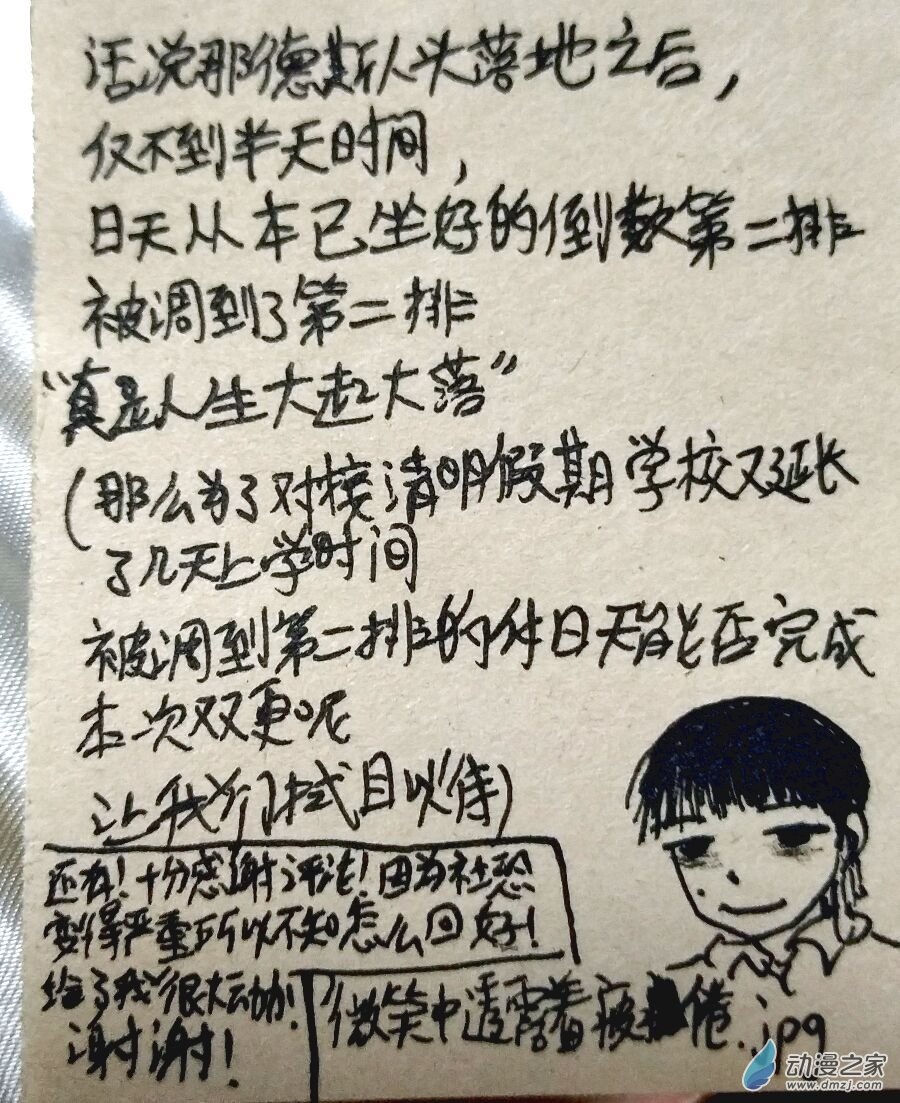 话说那德斯人头落地之后，
仅不到半天时间，
日天从本已坐好的倒数第二排
被调到了第二排
“真是人生大起大落”
(那么为了对接清明假期学校又延长
了几天上学时间
被调到第二排的休日天能否完成
本次双更呢
让我们拭目以待)
还有！十分感谢评论！因为社恐
变得严重所以不知怎么回好！
给了我很大动力！
谢谢！
微笑中透露着疲倦.jpg
动漫之家
www.dmzj.com